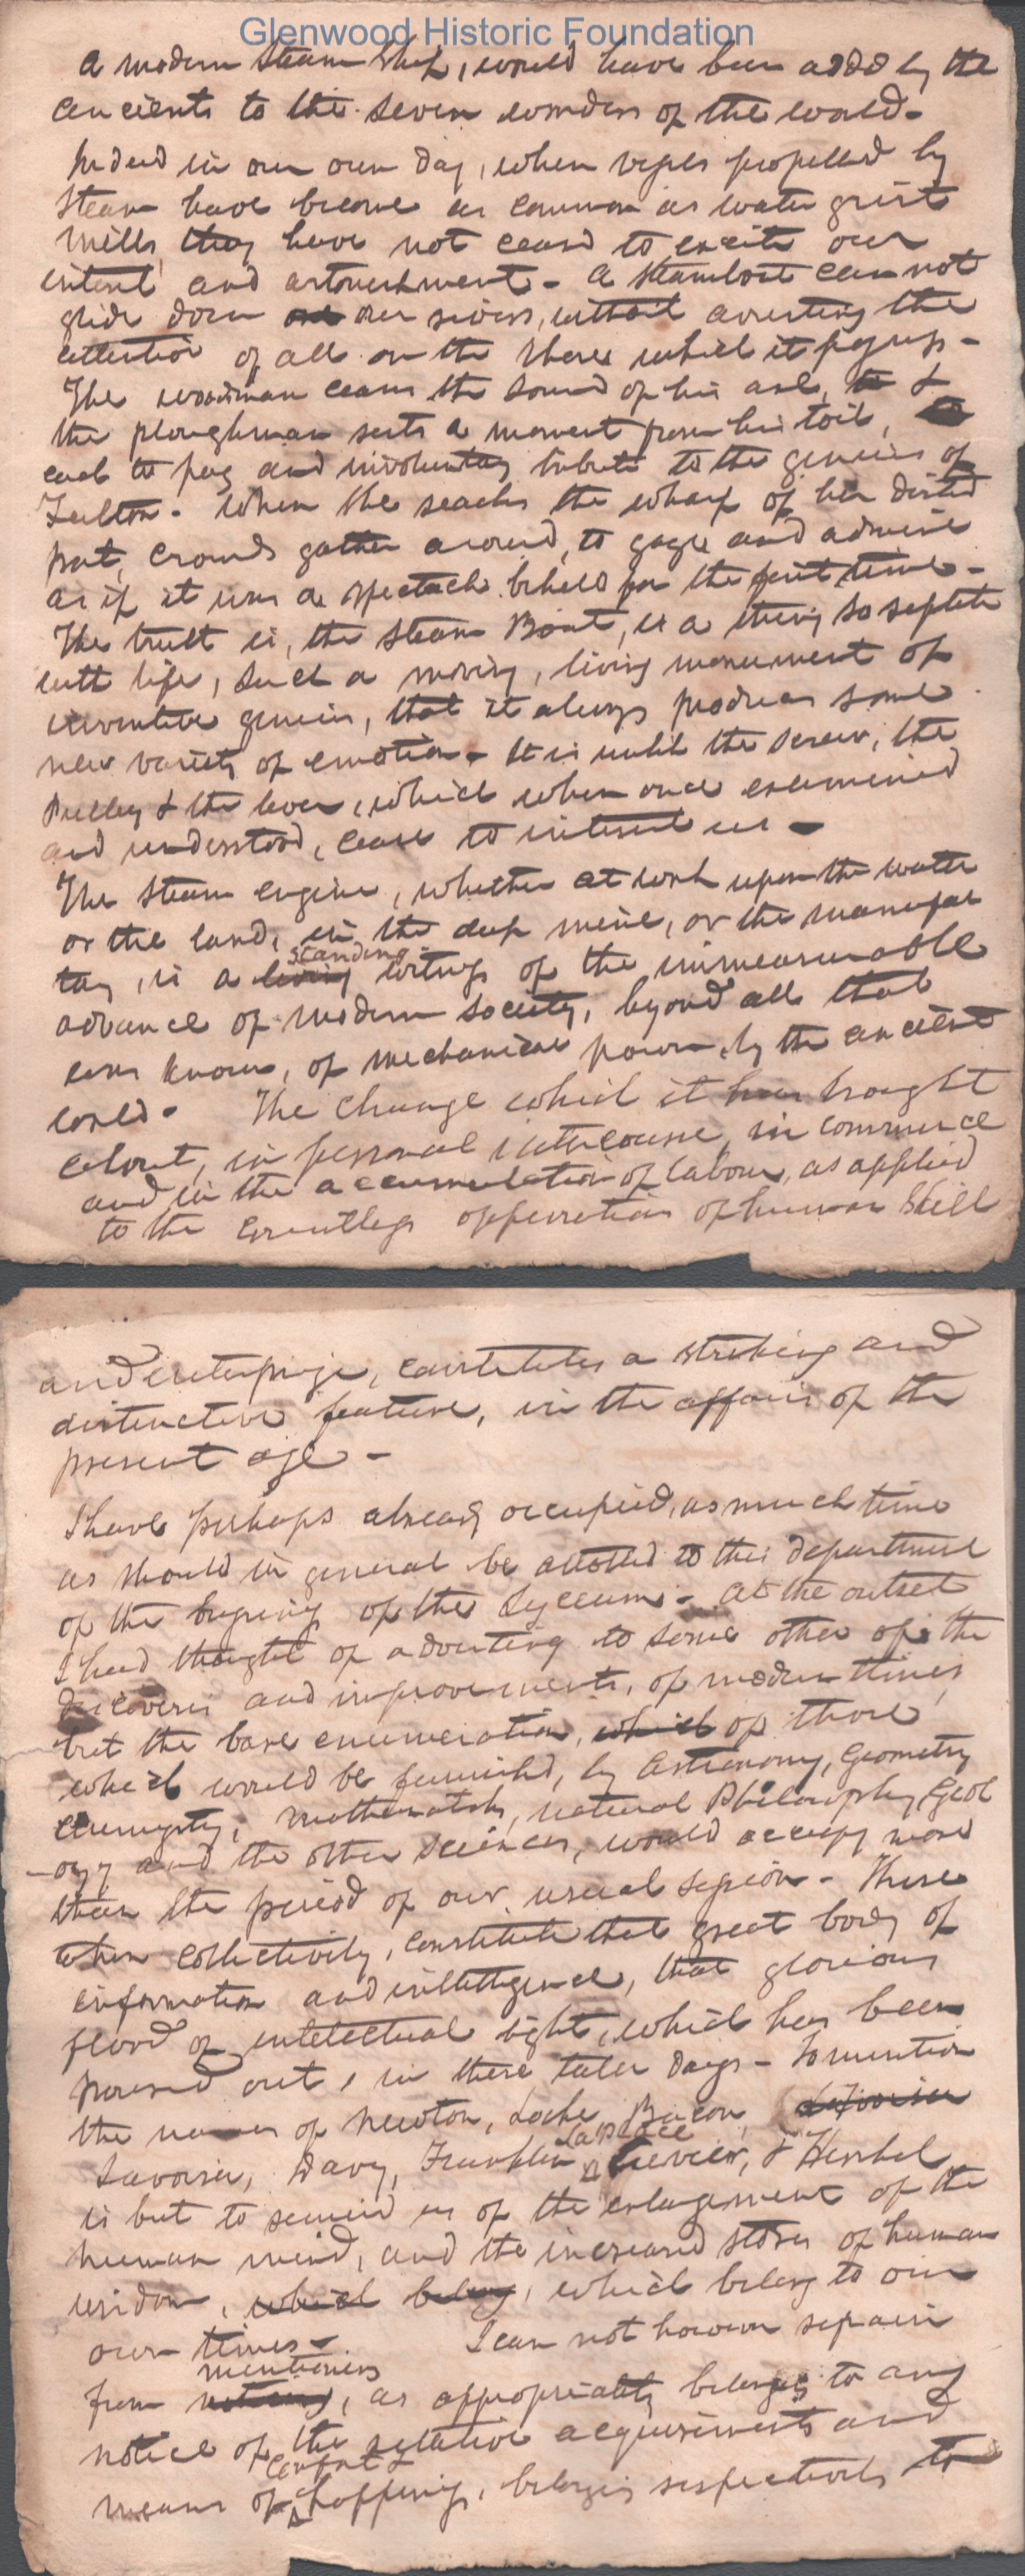 Glenwood Historic Foundation
A modern Steam Ship, would have been added by the
ancients to the seven wonders of the world -
Indeed in our own day, when vessels propelled by
Steam have become as common as water grist
mills, they have not ceased to excite our
interest and astonishment - A steamboat can not
glide down our rivers, without arresting the
attention of all on the shores which it passes -
The woodman ceases the sound of his axe, &
the ploughman rests a moment from his toil,
each to pay and involuntary tribute to the genius of
Fulton - When she reaches the wharf of her destined
port, crowds gather around, to gaze and admire
as if it was a spectacle beheld for the first time -
The truth is, the Steam Boat, is a thing so replete
with life, such a moving, living monument of
inventive genius, that it always produces some
new variety of emotion - It is unlike the screw, the
Pulley & the lever, which when once examined
and understood, cease to interest us -
The Steam engine, whether at work upon the water
or the land, in the deep mine, or the manufac
tory, is a living standing witness of the immeasurable
advance of modern society, beyond all that
was known, of mechanical power, by the ancient
world - The change which it has brought
about, in personal intercourse, in commerce
and in the accumulation of labour, as applied
to the countless opperations of human skill
and enterprize, constitutes a striking and
distinctive feature, in the affairs of the
present age -
I have perhaps already occupied, as much time
as should in general be allotted to this department
of the business of the Lyceum - At the outset
I had thought of adverting to some other of the
discoveries and improvements, of modern times,
but the bare enumeration, which of those
which would be furnished, by Astronomy, Geometry
Chemistry, Mathematicks, natural Philosophy, Geol
-ogy and the other sciences, would occupy more
than the period of our usual session - These
when collectively, constitute that great body of
information and intelligence, that glorious
flood of intelectual light, which has been
poured out, in these later days - To mention
the names of Newton, Locke, Bacon, Lavoisier
Lavoisier, Davy, Franklin, La Place Cuvier, & Hershel
is but to remind us of the enlargement of the
human mind, and the increased stores of human
wisdom, which belong, which belong to our
own times - I can not however refrain
from noticing mentioning, as appropriately belonging to any
notice of the relative acquirements and
means of comfort & happiness, belonging respectively to